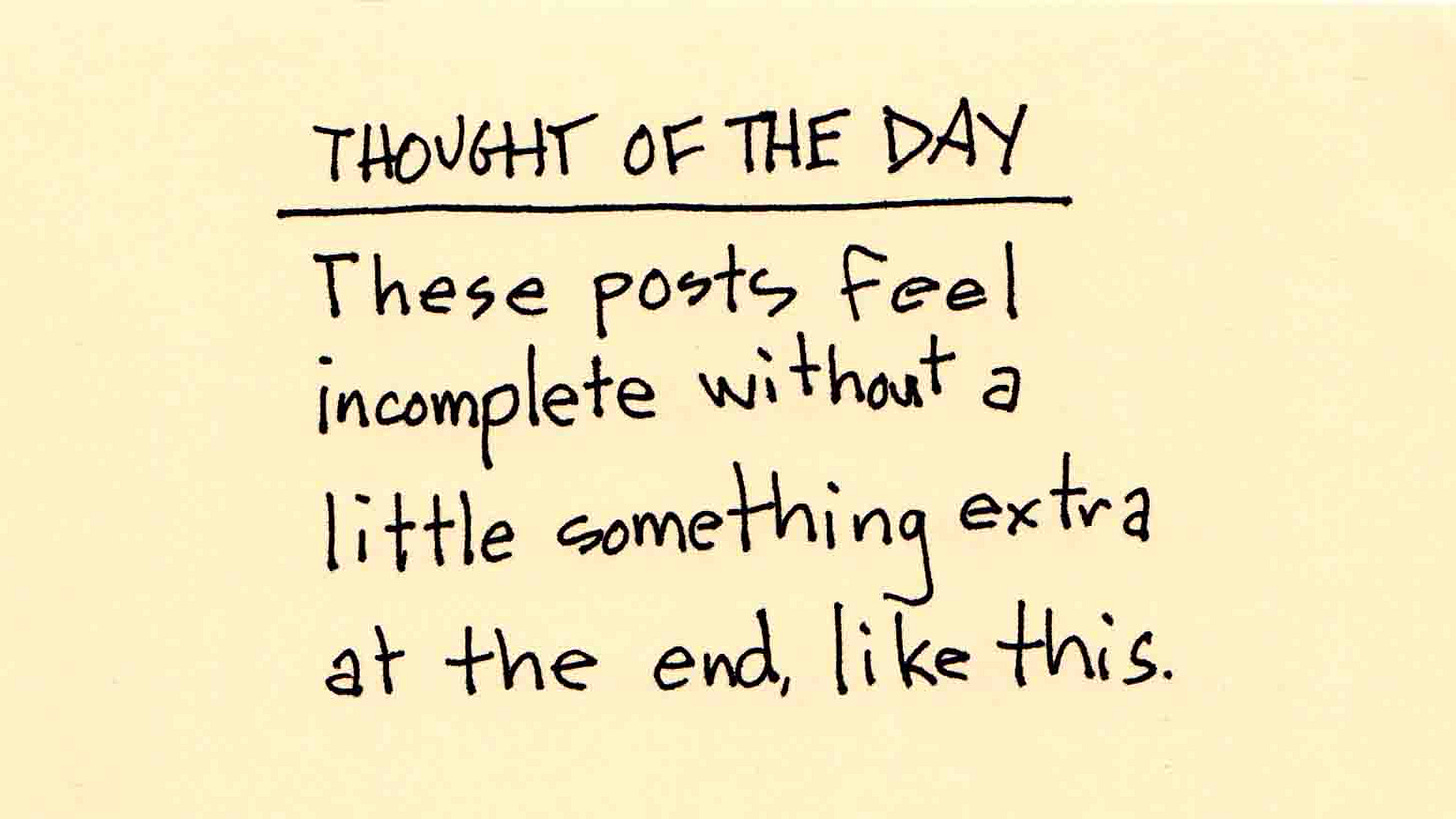 THOUGHT OF THE DAY
These posts feel
incomplete without a
little something extra
at the end, like this.